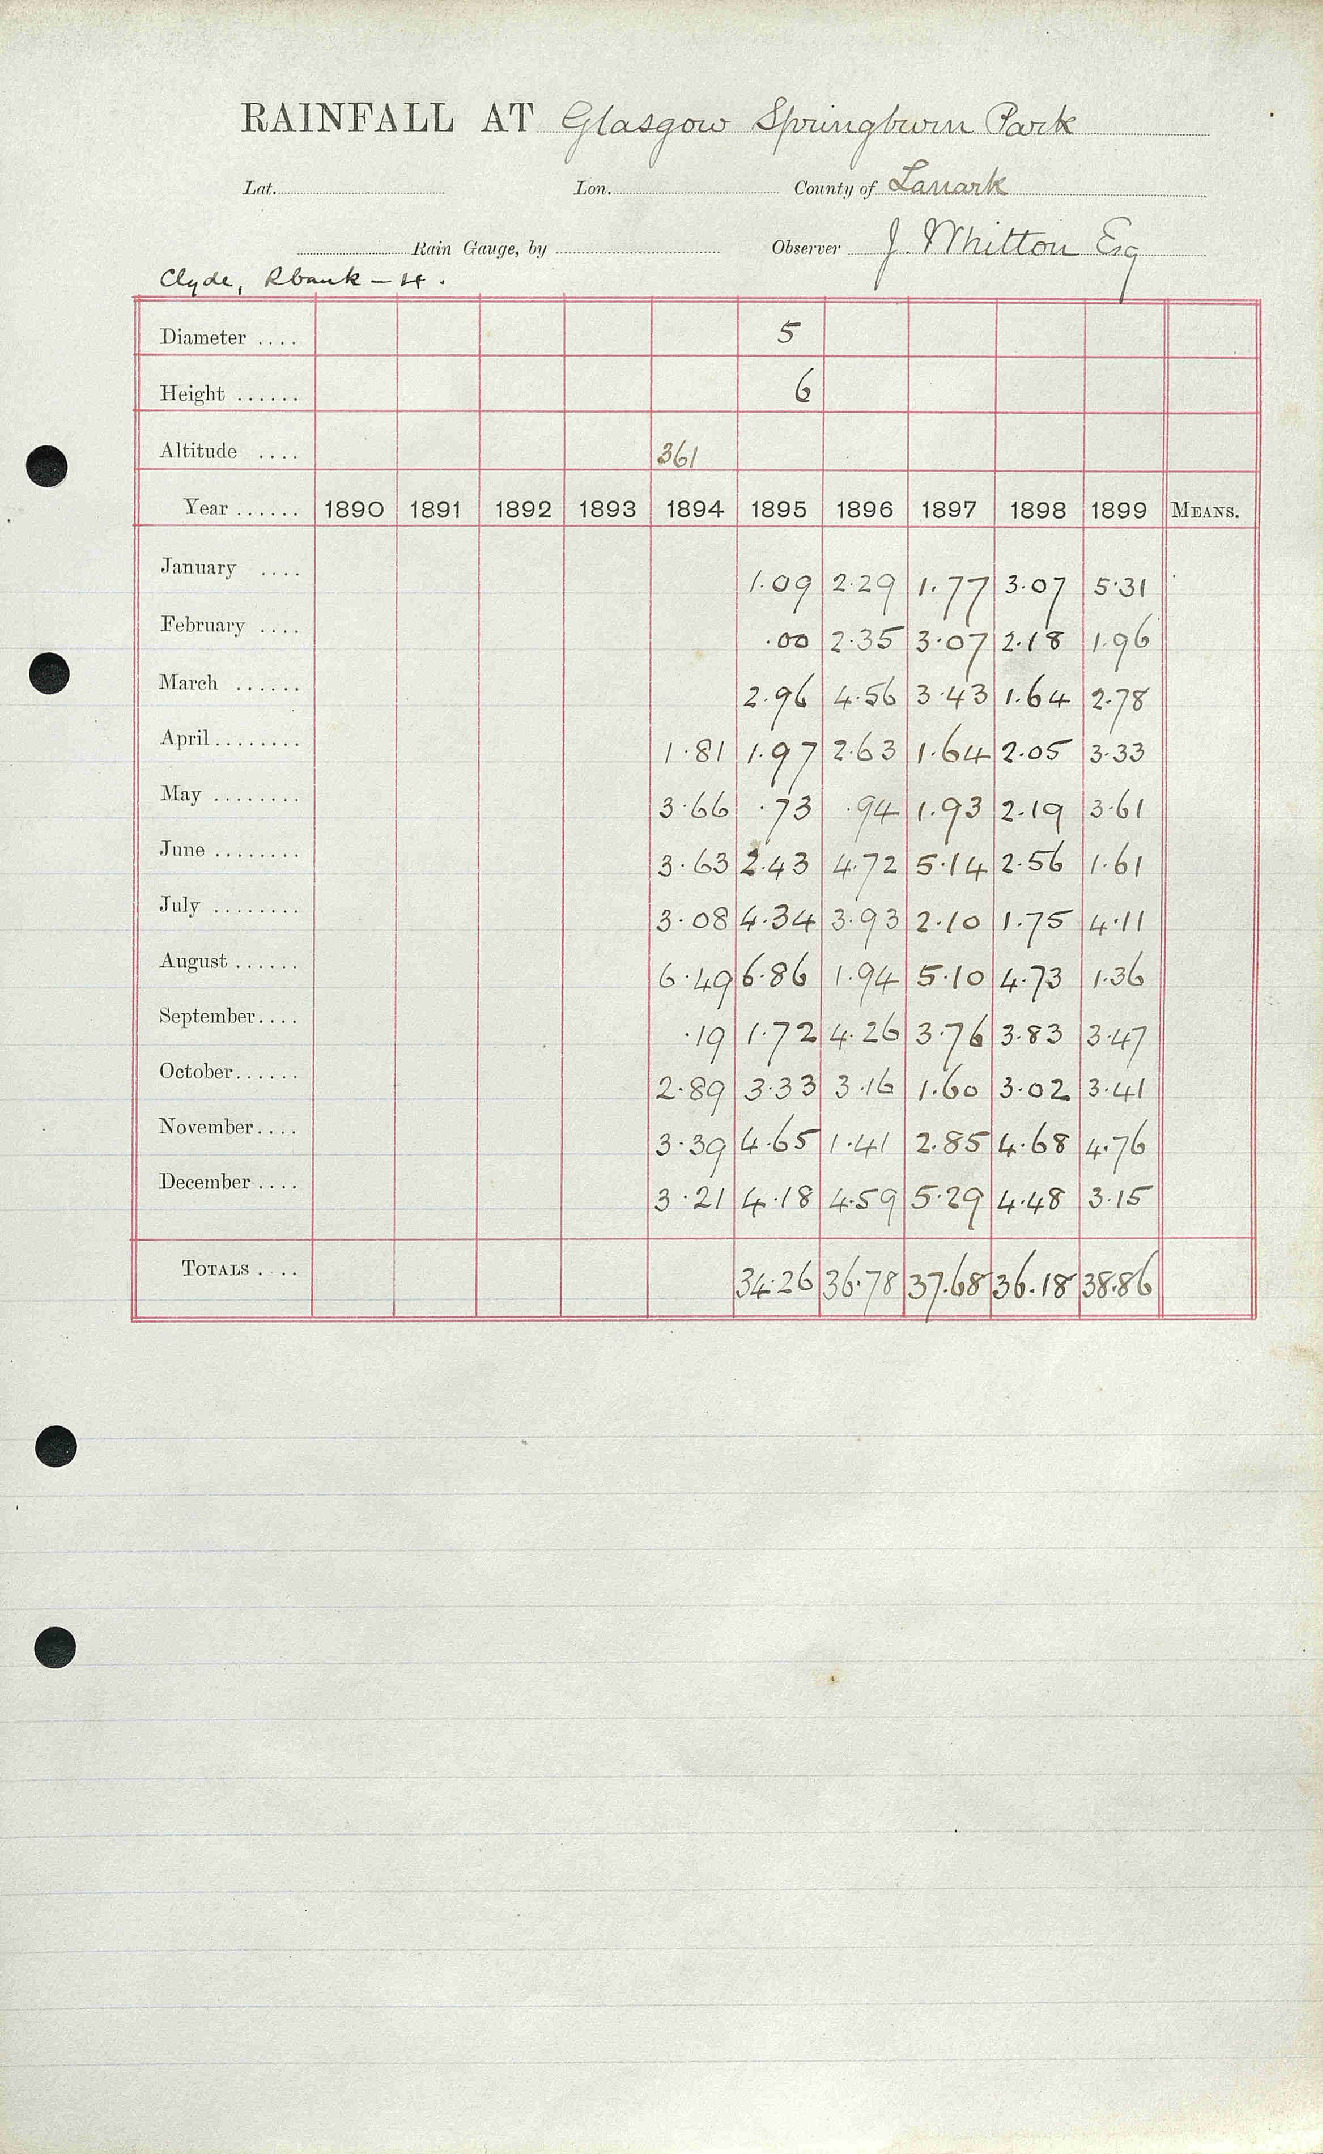 RAINFALL AT Glasgow Springburn Park
Lat. Lon. County of Lanark
Rain Gauge, by Observer J. Whitton Esq
Clyde, Rbank – 4.
Diameter .... 5
Height ...... 6
Altitude .... 361
Year ...... 1890 1891 1892 1893 1894 1895 1896 1897 1898 1899 MEANS.
January .... 1.09 2.29 1.77 3.07 5.31
February .... .00 2.35 3.07 2.18 1.96
March ...... 2.96 4.56 3.43 1.64 2.78
April ........ 1.81 1.97 2.63 1.64 2.05 3.33
May ........ 3.66 .73 .94 1.93 2.19 3.61
June ........ 3.63 2.43 4.72 5.14 2.56 1.61
July ........ 3.08 4.34 3.93 2.10 1.75 4.11
August ...... 6.49 6.86 1.94 5.10 4.73 1.36
September .... .19 1.72 4.26 3.76 3.83 3.47
October ...... 2.89 3.33 3.16 1.60 3.02 3.41
November .... 3.39 4.65 1.41 2.85 4.68 4.76
December .... 3.21 4.18 4.59 5.29 4.48 3.15
TOTALS .... 34.26 36.78 37.68 36.18 38.86